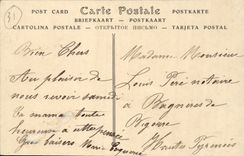 31
POST CARD Carte Postale POSTKARTE
BRIEFKAART — POSTKAART
CARTOLINA POSTALE — ОТКРЫТОЕ ПИСЬМО — TARJETA POSTAL
Bien Chers
Au plaisir de
nous revoir samedi
maman toute
heureuse a cette
Bons baisers
Madame Monsieur
Louis Péré notaire
à Bagnères de
Bigorre
Hautes Pyrénées